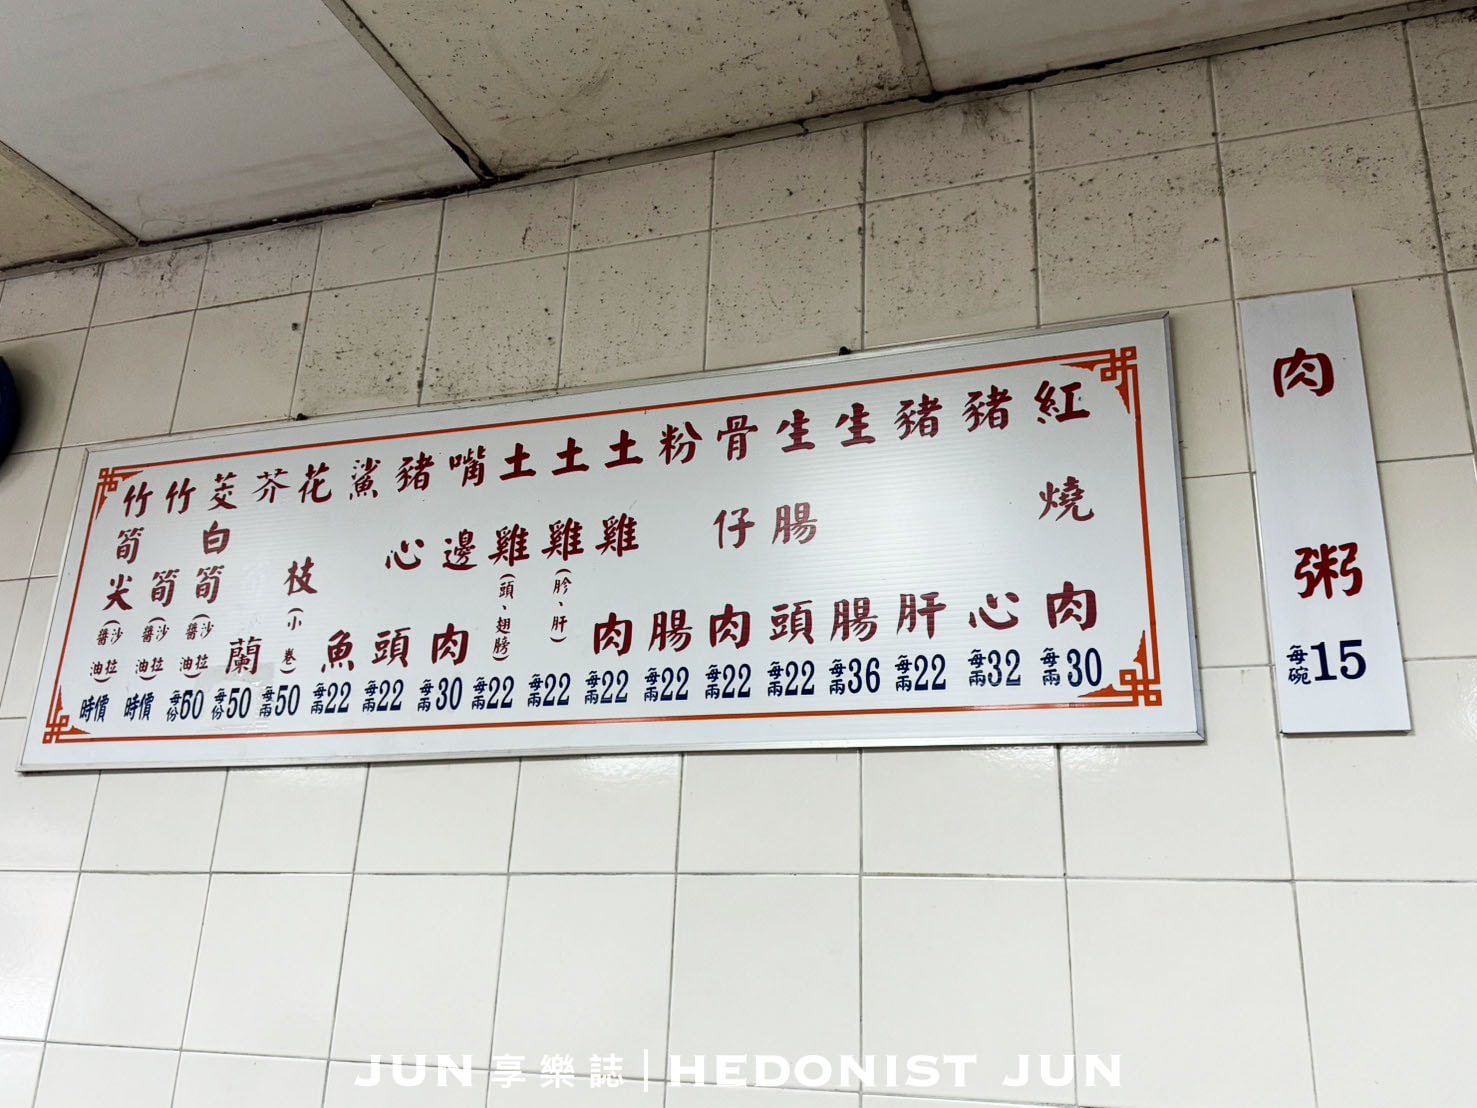 紅燒肉 每兩30
豬心 每兩32
豬肝 每兩22
生腸 每兩36
生腸頭 每兩22
骨仔肉 每兩22
粉腸 每兩22
土雞肉 每兩22
土雞(肫、肝) 每兩22
土雞(頭、翅膀) 每兩22
嘴邊肉 每兩30
豬心頭 每兩22
鯊魚 每兩22
花枝(小卷) 每兩50
芥蘭 每份50
茭白筍(沙拉 醬油) 每份60
竹筍(沙拉 醬油) 時價
竹筍尖(沙拉 醬油) 時價
肉粥 每碗15
JUN享樂誌|HEDONIST JUN